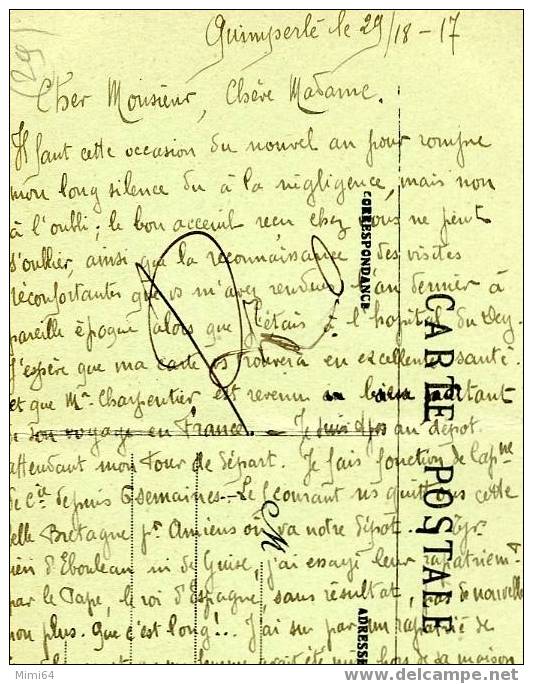 (29)
Quimperlé le 29/18-17
Cher Monsieur, Chère Madame.
Il faut cette occasion du nouvel an pour rompre
mon long silence du à la négligence, mais non
à l'oubli; le bon acceuil reçu chez vous ne peut
s'oublier, ainsi que la reconnaissance des visites
réconfortantes que vs m'avez rendues l'an dernier à
pareille époque alors que j'étais à l'hopital du Dey
J'espère que ma carte vs trouvera en excellente santé.
et que Mr Charpentier est revenu bien portant
son voyage en France. - Je suis au dépot.
attendant mon Tour de départ. Je fais fonction de Capne
de Cie depuis 6 semaines.- Le courant ns quittons cette
elle Bretagne pr Amiens où va notre dépot.
ien d'Ebouleau ni de Guise, j'ai essayé leur rapatriem
par le Pape, le roi d'Espagne, sans résultat, pas de nouvelle
non plus. Que c'est long!... J'ai su par un rapatrié de
femme avait été mise hors de sa maison
CORRESPONDANCE
CARTE POSTALE
M
ADRESSE
Mimi64
delcampe.net